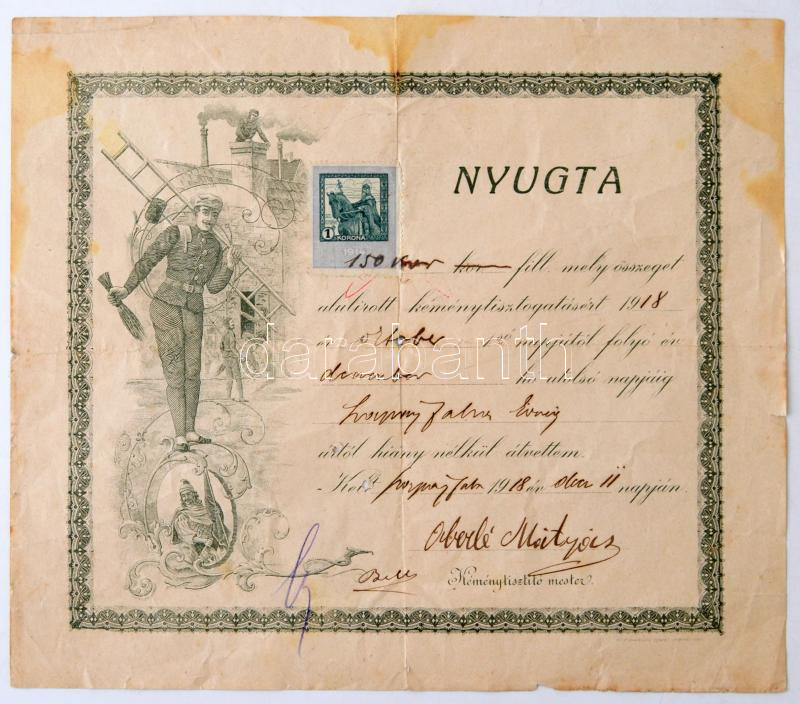 NYUGTA
1 KORONA
150 kor fill. mely összeget
alulirott kéménytisztogatásért 1918
év október 1ső napjától folyó év
december hó utolsó napjáig
urtól hiány nélkül átvettem.
Kelt 1918 év dec 11 napján.
Oberlé Mátyás
Kéménytisztitó mester.
darabanth